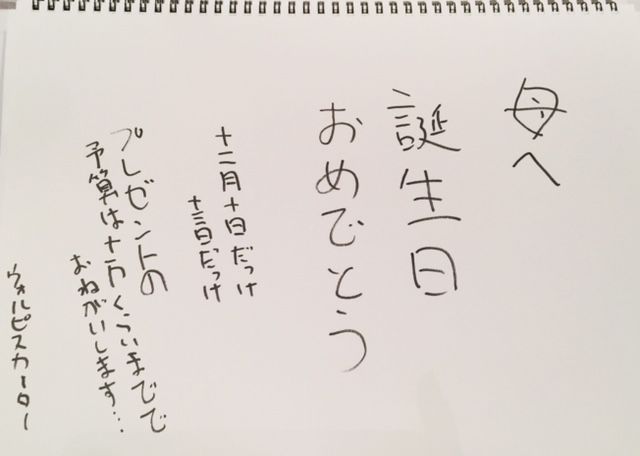 母へ
誕生日
おめでとう
十二月十日だっけ
十三日だっけ
プレゼントの
予算は十万くらいまでで
おねがいします…
ウォルピスカーター